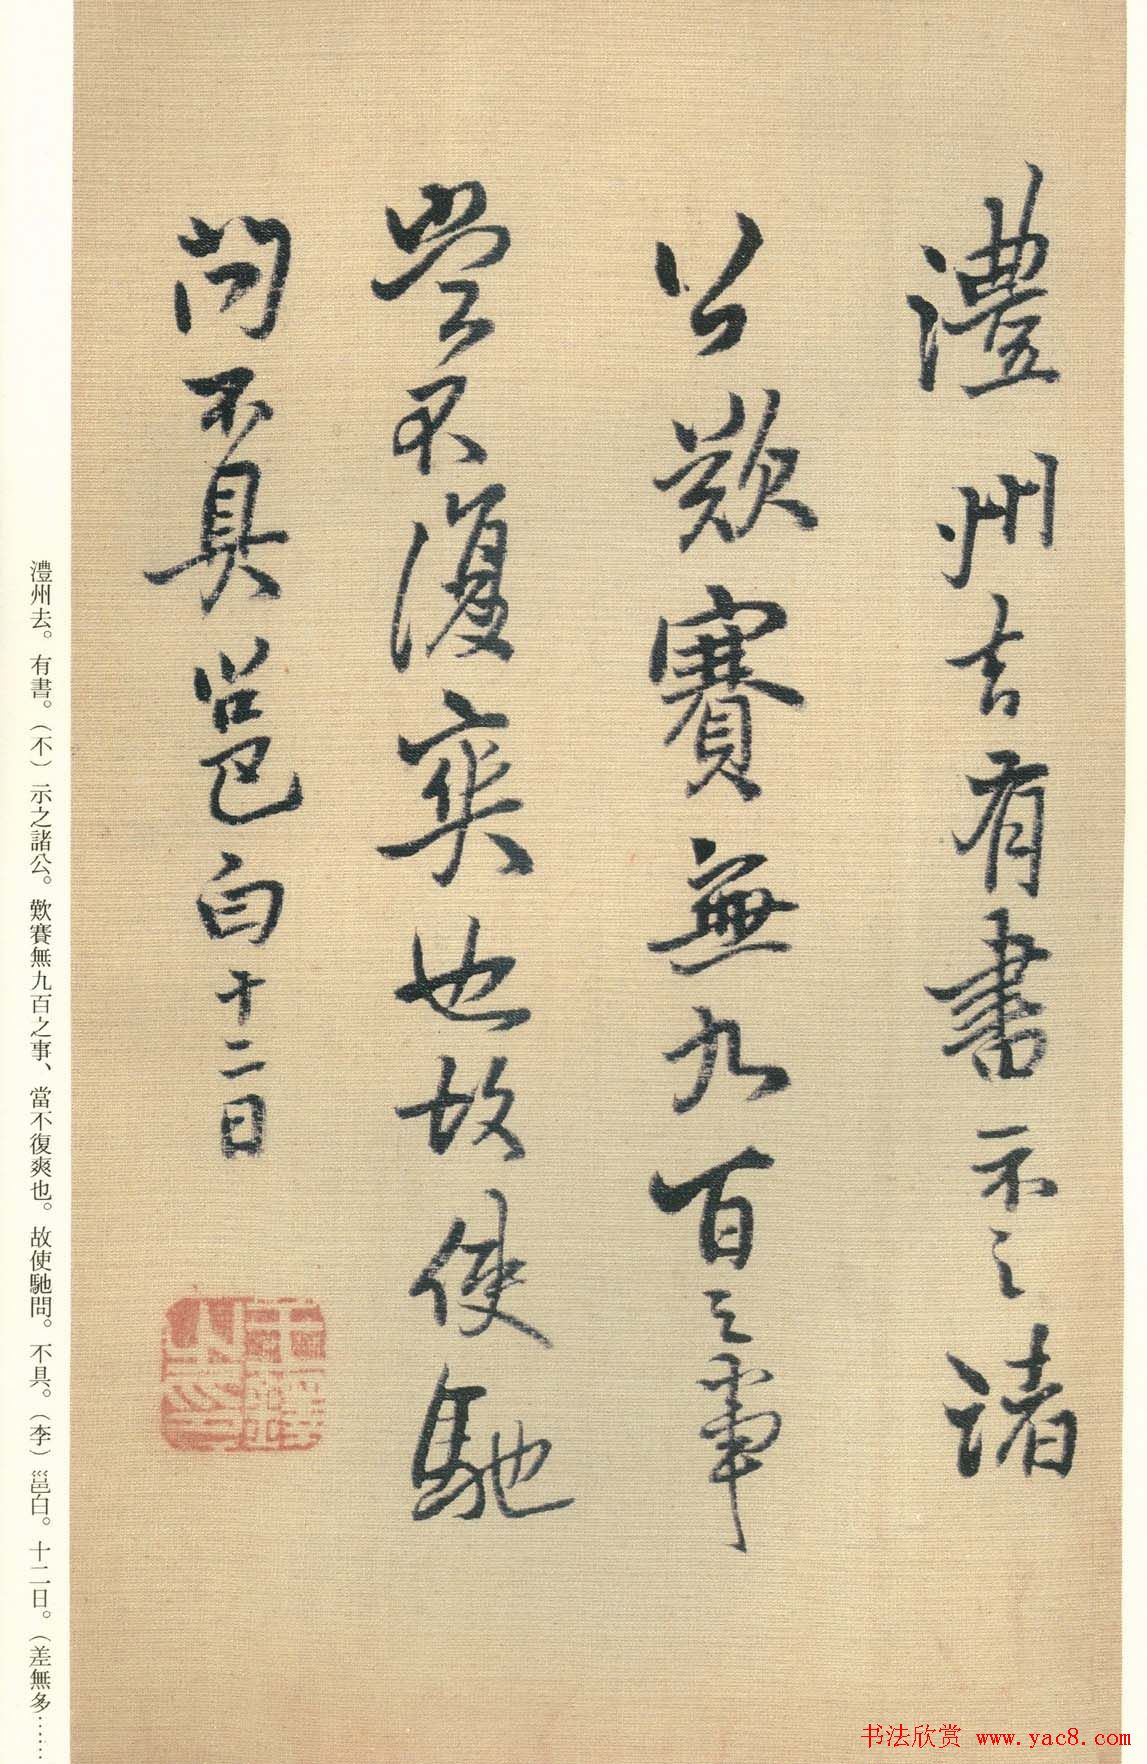 澧州去有書示之諸
公歎賽無九百之事
當不復爽也故使馳
問不具邕白十二日
澧州去。有書。（不）示之諸公。歎賽無九百之事、當不復爽也。故使馳問。不具。（李）邕白。十二日。（差無多……
书法欣赏 www.yac8.com